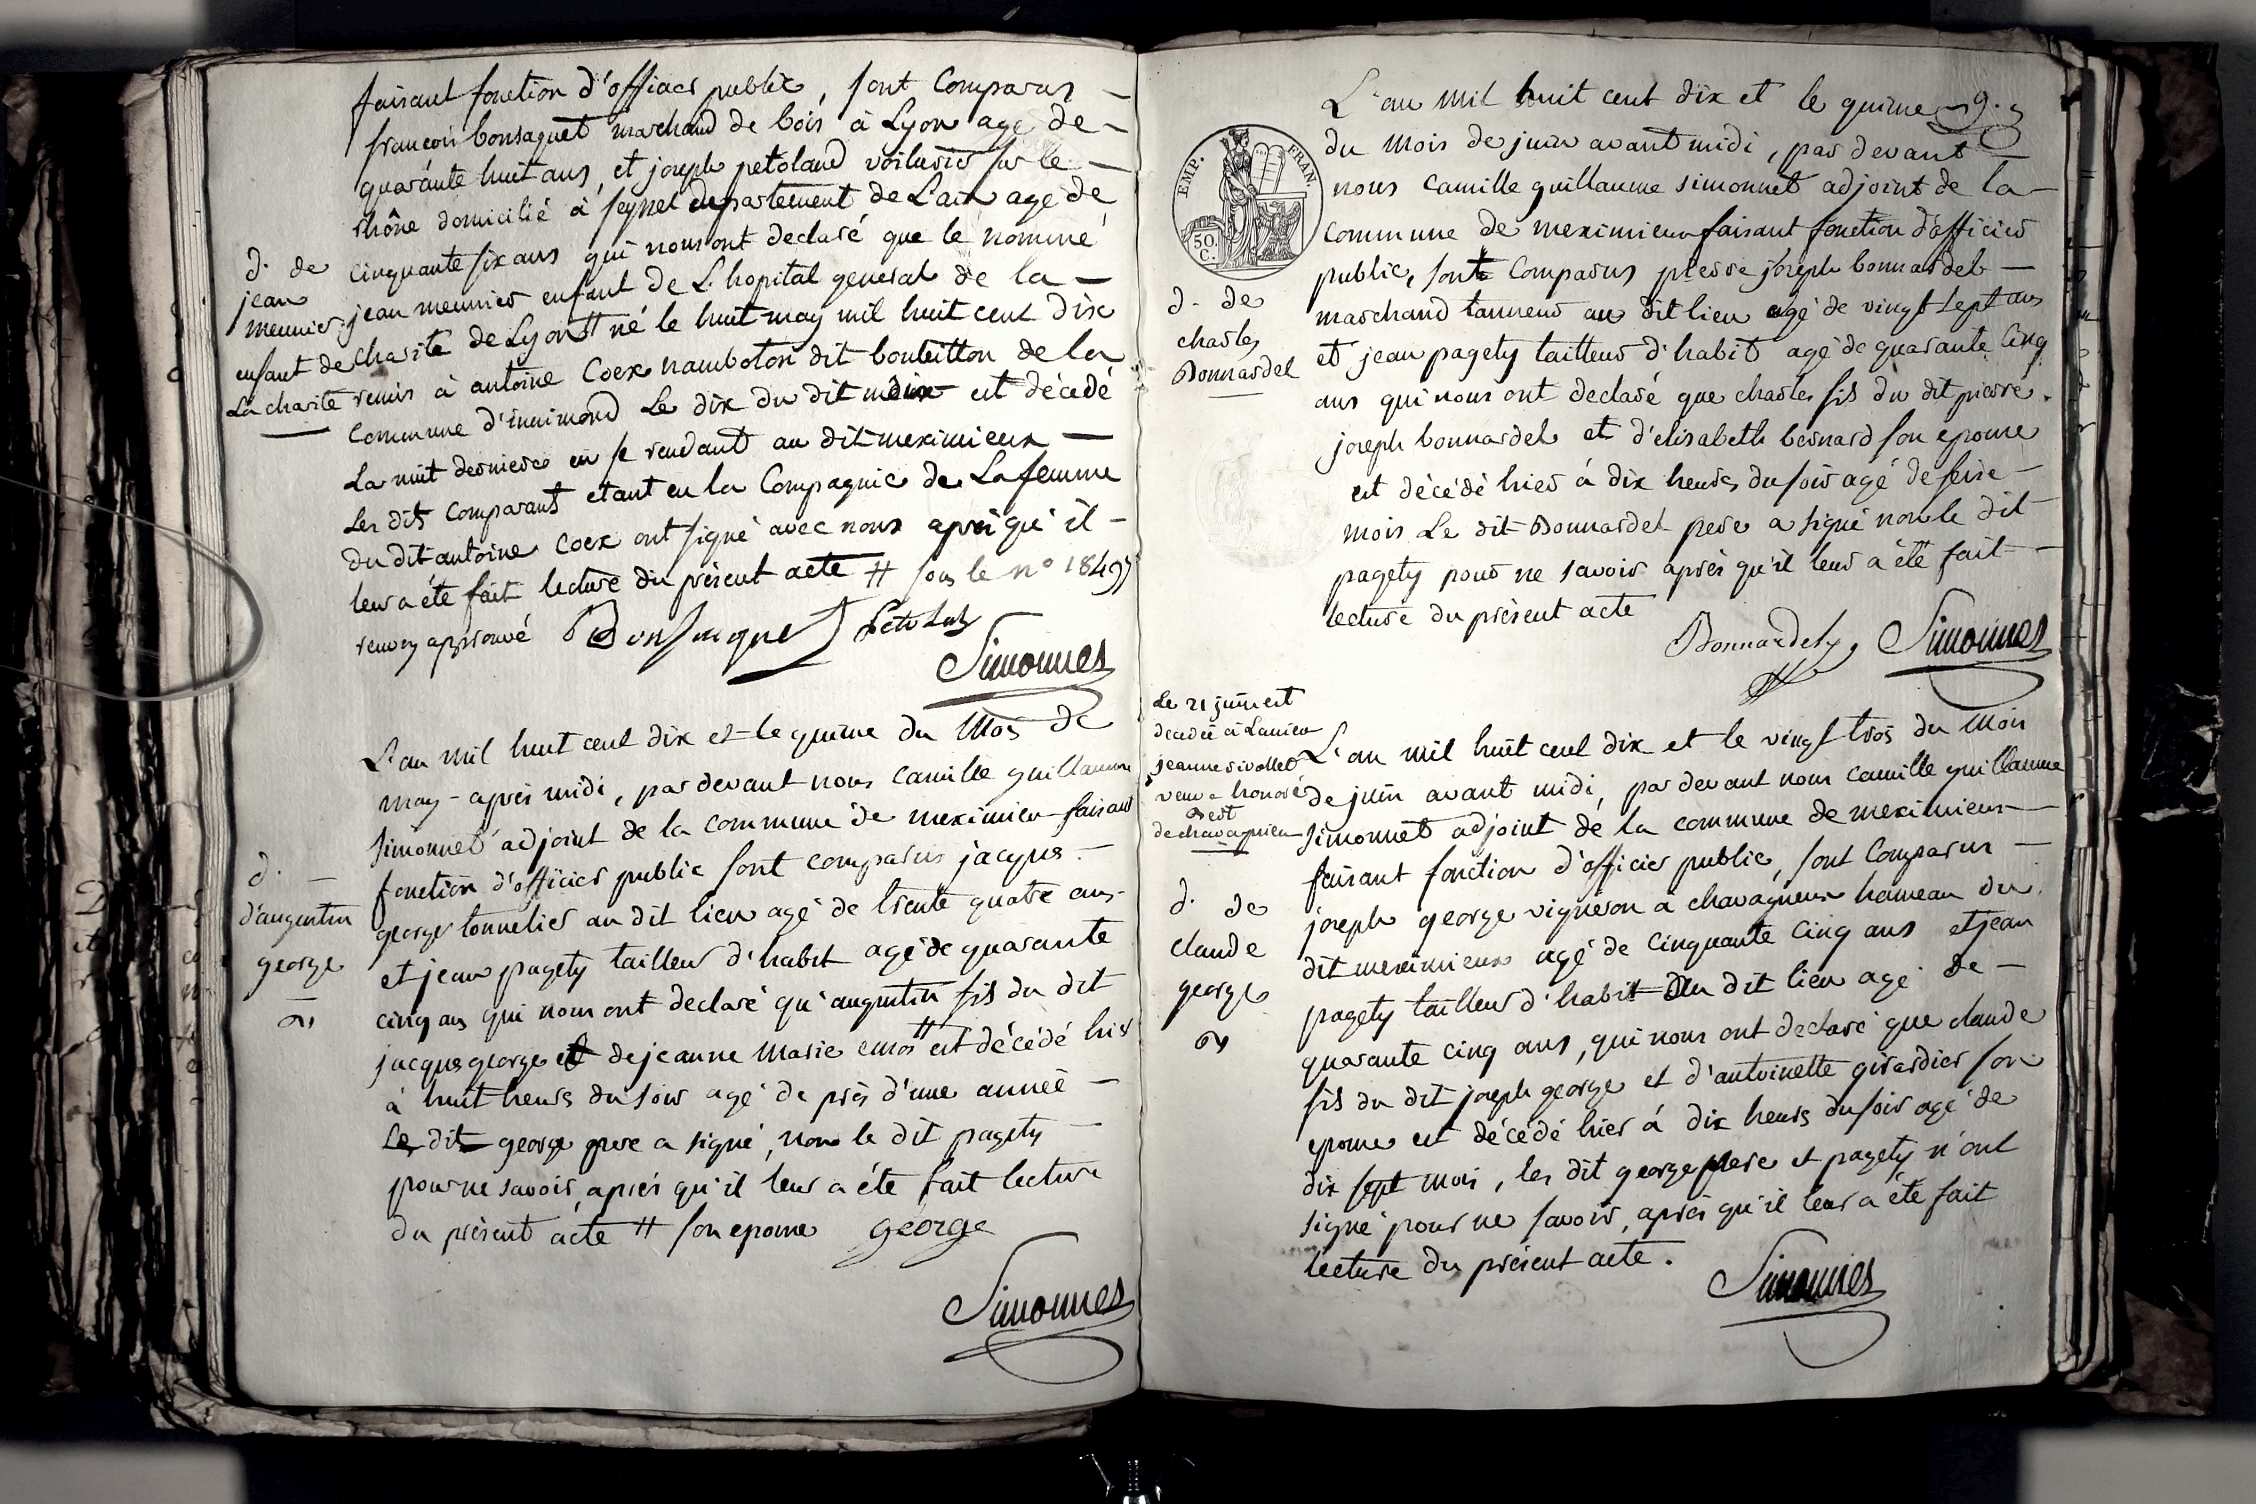 faisant fonction d'officier public, sont Comparus —
françois bonsaquet marchand de bois à Lyon agé de —
quarante huit ans, et joseph petoland voiturier sur le —
rhône domicilié à seyssel departement de L'ain agé de
cinquante six ans qui nous ont declaré que le nommé
jean meunier enfant de L'hopital general de la —
charité de Lyon # né le huit may mil huit cent dix
remis à antoine Coex namboton dit bouteillon de la
commune d'innimond Le dix du dit mois est décédé
La nuit derniere en se rendant au dit meximieux —
Les dits comparants etant en la Compagnie de La femme
du dit antoine coex ont signé avec nous après qu'il —
leur a été fait lecture du présent acte # sous le n° 18497
renvoy approuvé
Simonnet
d. de
jean
meunier
enfant de
La charité
L'an mil huit cent dix et le quinze du Mois de
may – après midi, par devant nous camille guillaume
simonnet adjoint de la commune de meximieu faisant
fonction d'officier public sont comparus jacques —
george tonnelier au dit lieu agé de trente quatre ans —
et jean pagety tailleur d'habit agé de quarante
cinq ans qui nous ont declaré qu'augustin fils du dit
jacques george et de jeanne Marie # est décédé hier
à huit heures du soir agé de près d'une année —
Le dit george pere a signé, non le dit pagety —
pour ne savoir, après qu'il leur a été fait lecture
du présent acte # son epouse george
Simonnet
d. —
d'augustin
george
9.
L'an mil huit cent dix et le quinze
du Mois de juin avant midi, par devant —
nous camille guillaume simonnet adjoint de la —
commune de meximieux faisant fonction d'officier
public, sont Comparus pierre joseph bonnardel —
marchand tanneur au dit lieu agé de vingt sept ans
et jean pagety tailleur d'habit agé de quarante cinq
ans qui nous ont declaré que charles fils du dit pierre
joseph bonnardel et d'elisabeth bernard son epouse
est décédé hier à dix heures du soir agé de seize —
mois Le dit Bonnardel pere a signé non le dit
pagety pour ne savoir après qu'il leur a été fait —
lecture du présent acte
Bonnardel Simonnet
EMP. FRAN.
50.
C.
d. de
charles
Bonnardel
Le 21 juin est
decedée à Lanieu
jeanne rivollet
veuve honoré
de chavagnieu
L'an mil huit cent dix et le vingt trois du Mois
de juin avant midi, par devant nous camille guillaume
simonnet adjoint de la commune de meximieux —
faisant fonction d'officier public, sont Comparus —
joseph george vigneron a chavagnieux hameau du
dit meximieux agé de cinquante cinq ans et jean
pagety tailleur d'habit au dit lieu agé de —
quarante cinq ans, qui nous ont declaré que claude
fils du dit joseph george et d'antoinette girardier son
epouse est décédé hier à dix heures du soir agé de
dix sept mois, les dit george pere et pagety n'ont
signé pour ne savoir, après qu'il leur a été fait
lecture du présent acte.
Simonnet
d. de
claude
george